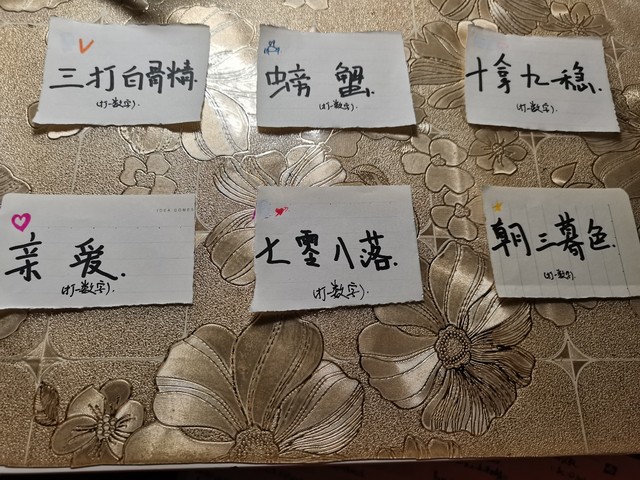 三打白骨精.
(打一数字).
螃蟹.
(打一数字).
十拿九稳.
(打一数字).
亲爱.
(打一数字).
七零八落.
(打一数字).
朝三暮色.
(打一数字).